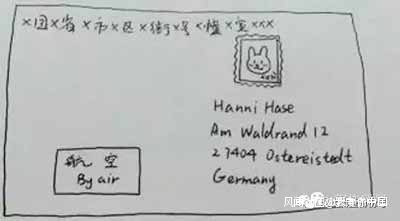 ×国×省×市×区×街×号×幢×室×××
Hanni Hase
Am Waldrand 12
27404 Ostereistedt
Germany
航空
By air
风闻